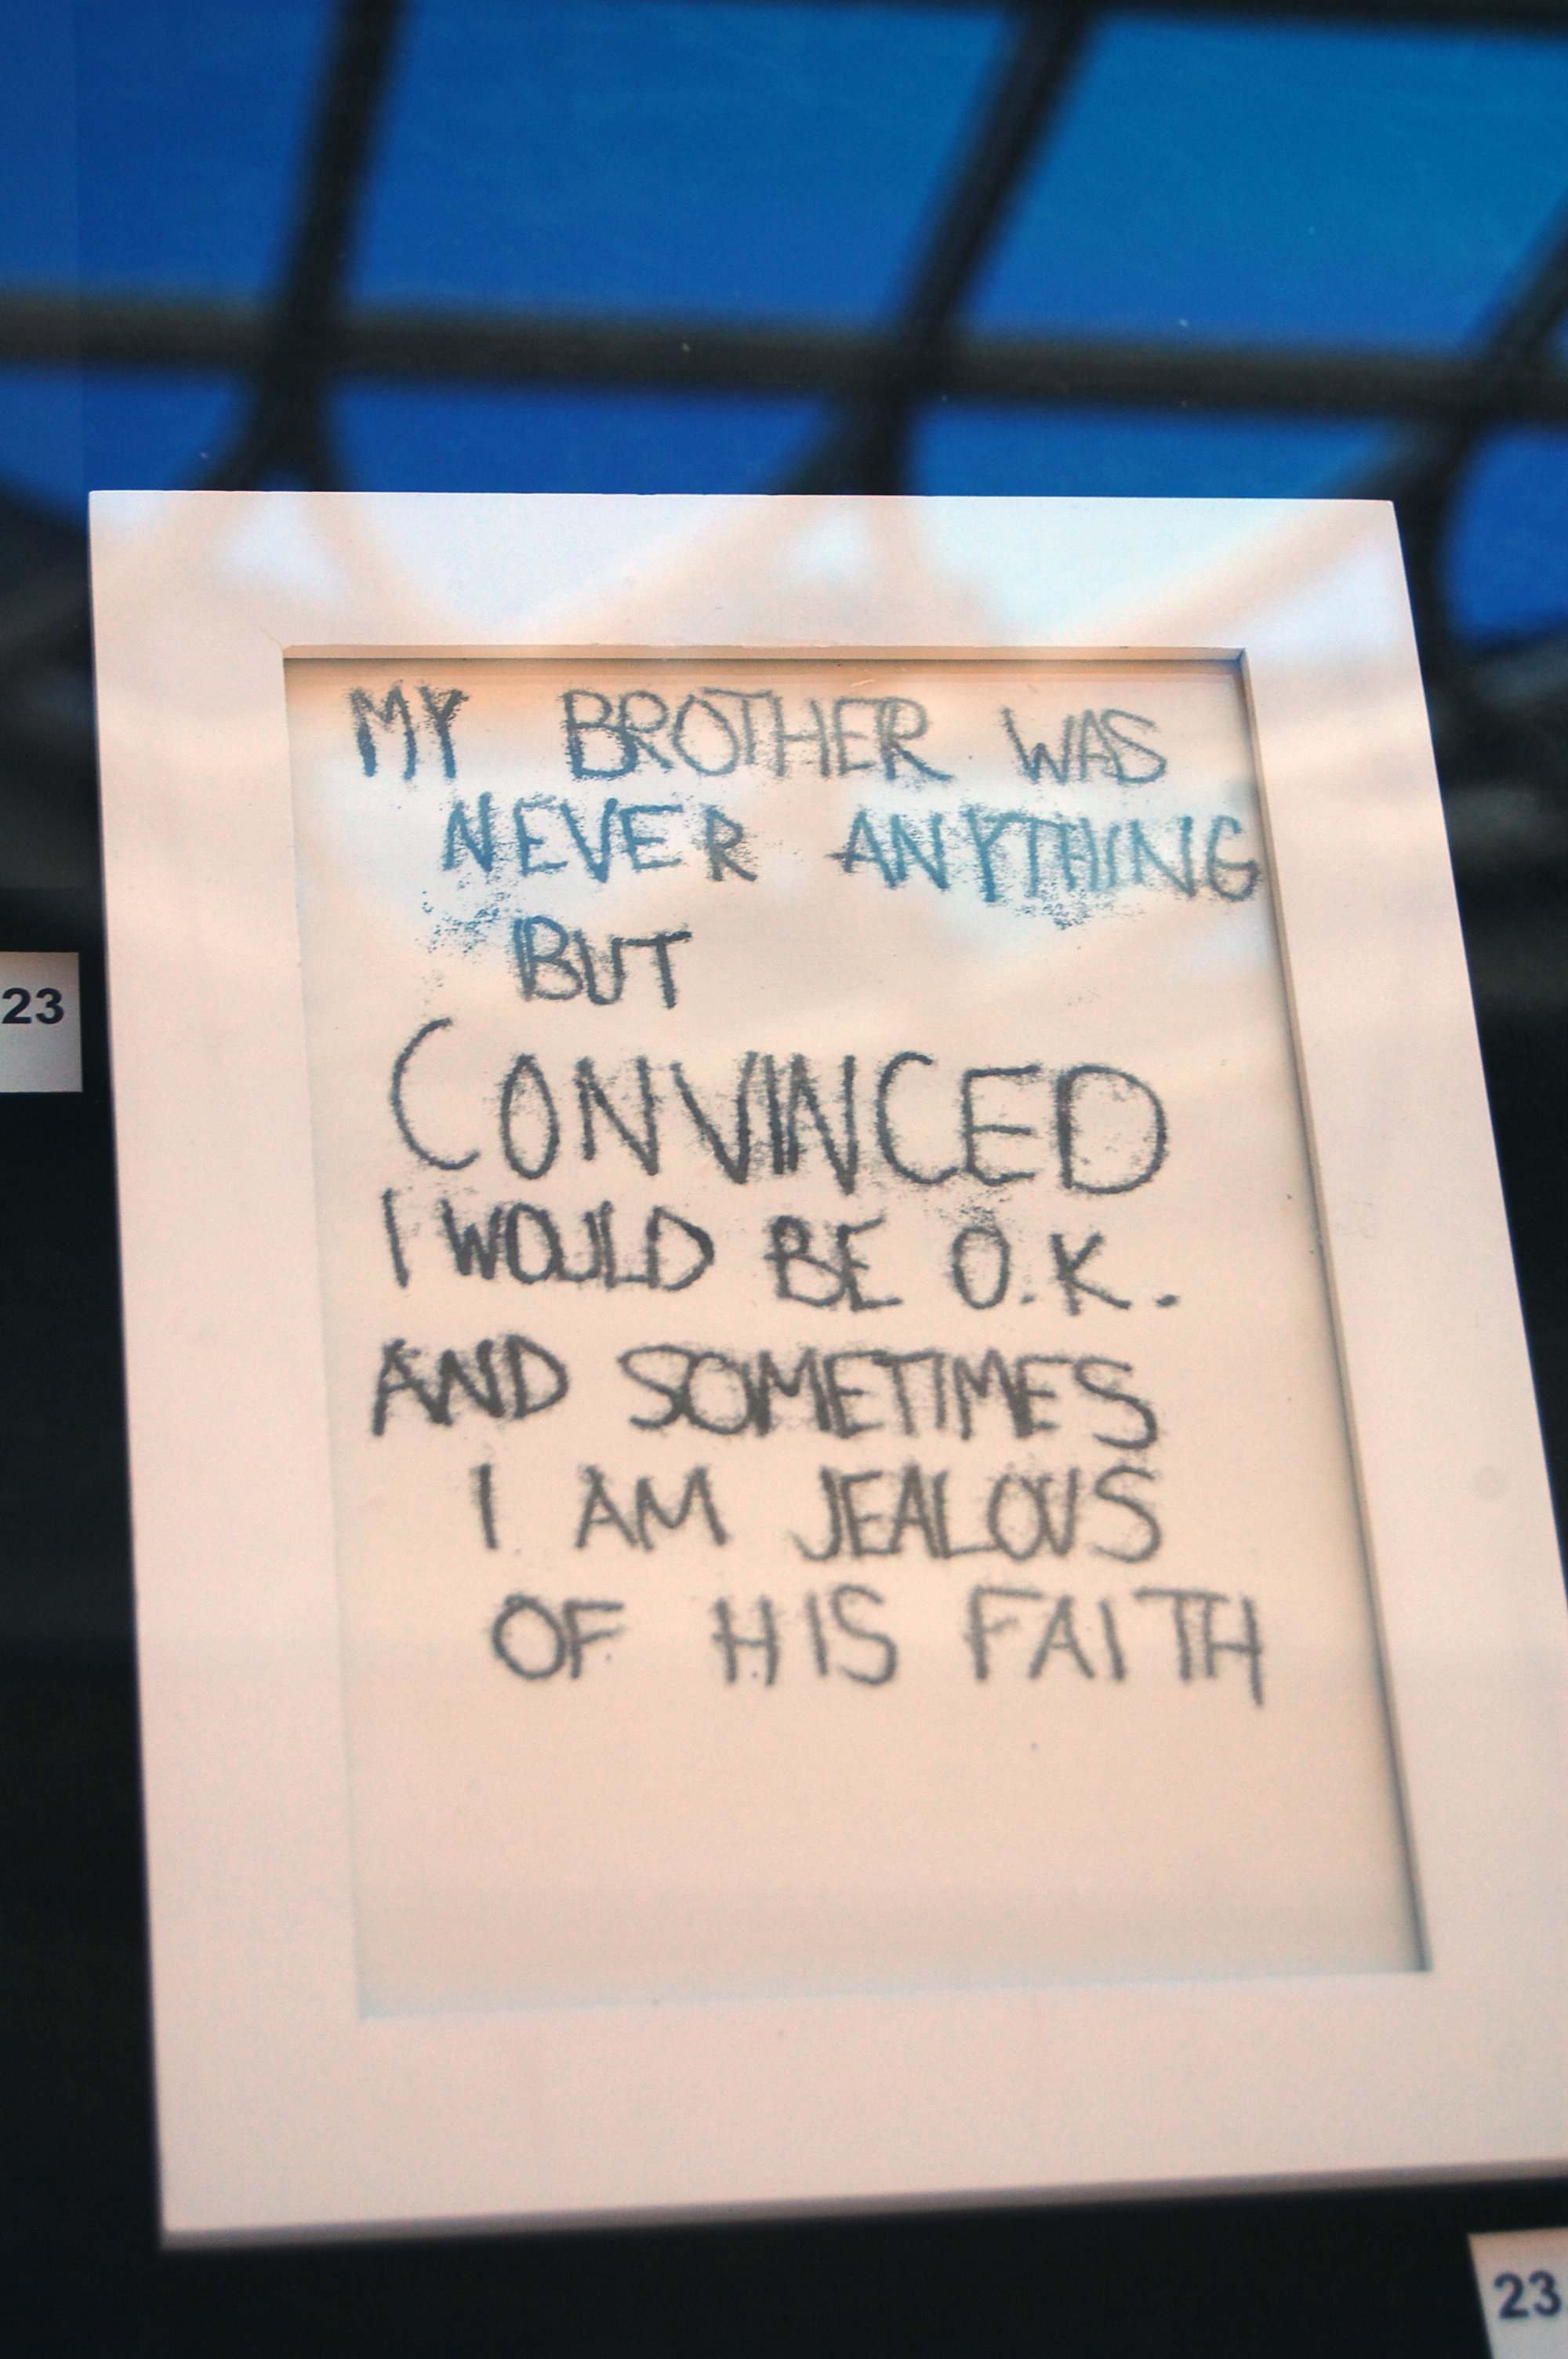 MY BROTHER WAS
NEVER ANYTHING
BUT
CONVINCED
I WOULD BE O.K.
AND SOMETIMES
I AM JEALOUS
OF HIS FAITH
23
23